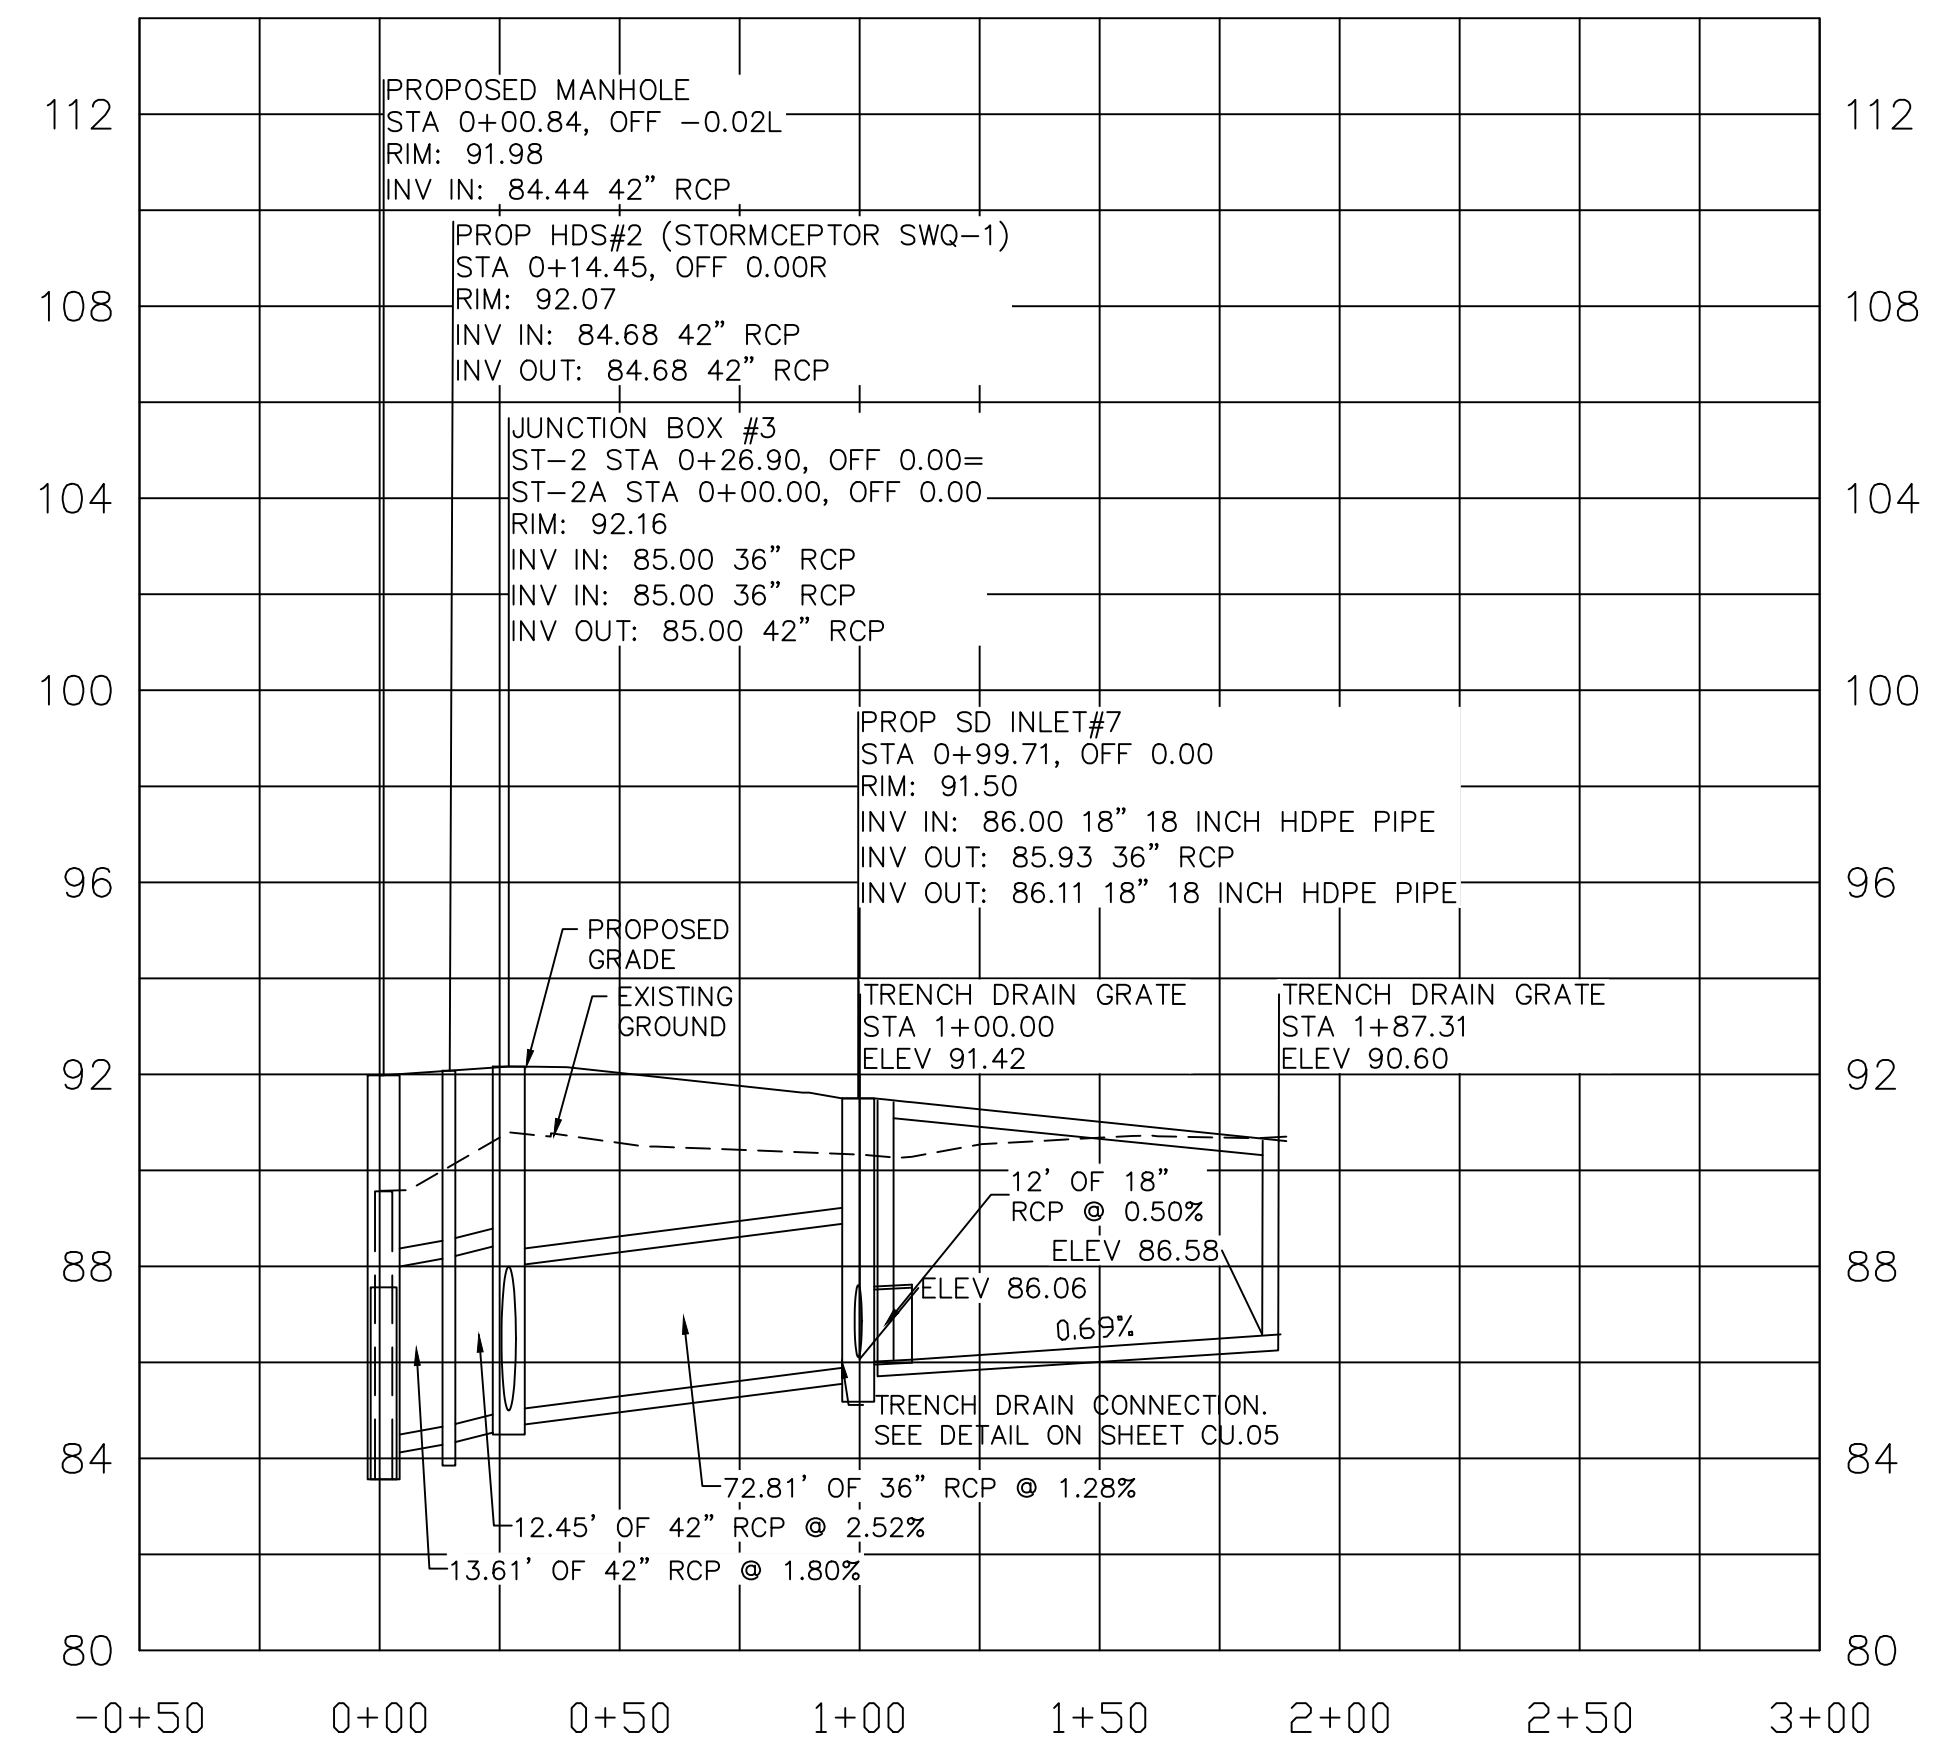 PROPOSED MANHOLE
STA 0+00.84, OFF −0.02L
RIM: 91.98
INV IN: 84.44 42" RCP
PROP HDS#2 (STORMCEPTOR SWQ−1)
STA 0+14.45, OFF 0.00R
RIM: 92.07
INV IN: 84.68 42" RCP
INV OUT: 84.68 42" RCP
JUNCTION BOX #3
ST−2 STA 0+26.90, OFF 0.00=
ST−2A STA 0+00.00, OFF 0.00
RIM: 92.16
INV IN: 85.00 36" RCP
INV IN: 85.00 36" RCP
INV OUT: 85.00 42" RCP
PROP SD INLET#7
STA 0+99.71, OFF 0.00
RIM: 91.50
INV IN: 86.00 18" 18 INCH HDPE PIPE
INV OUT: 85.93 36" RCP
INV OUT: 86.11 18" 18 INCH HDPE PIPE
PROPOSED
GRADE
EXISTING
GROUND
TRENCH DRAIN GRATE
STA 1+00.00
ELEV 91.42
TRENCH DRAIN GRATE
STA 1+87.31
ELEV 90.60
12' OF 18"
RCP @ 0.50%
ELEV 86.58
ELEV 86.06
0.69%
TRENCH DRAIN CONNECTION.
SEE DETAIL ON SHEET CU.05
72.81' OF 36" RCP @ 1.28%
12.45' OF 42" RCP @ 2.52%
13.61' OF 42" RCP @ 1.80%
112
108
104
100
96
92
88
84
80
112
108
104
100
96
92
88
84
80
−0+50
0+00
0+50
1+00
1+50
2+00
2+50
3+00